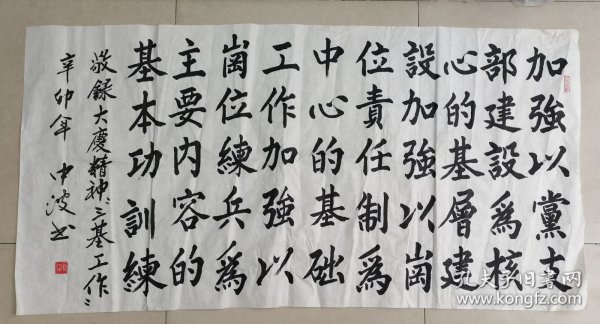 加強以黨支
部建設為核
心的基層建
設加強以崗
位責任制為
中心的基础
工作加強以
崗位練兵為
主要内容的
基本功訓練
敬録大慶精神、三基工作〻
辛卯年 中波书
孔夫子旧书网
www.kongfz.com